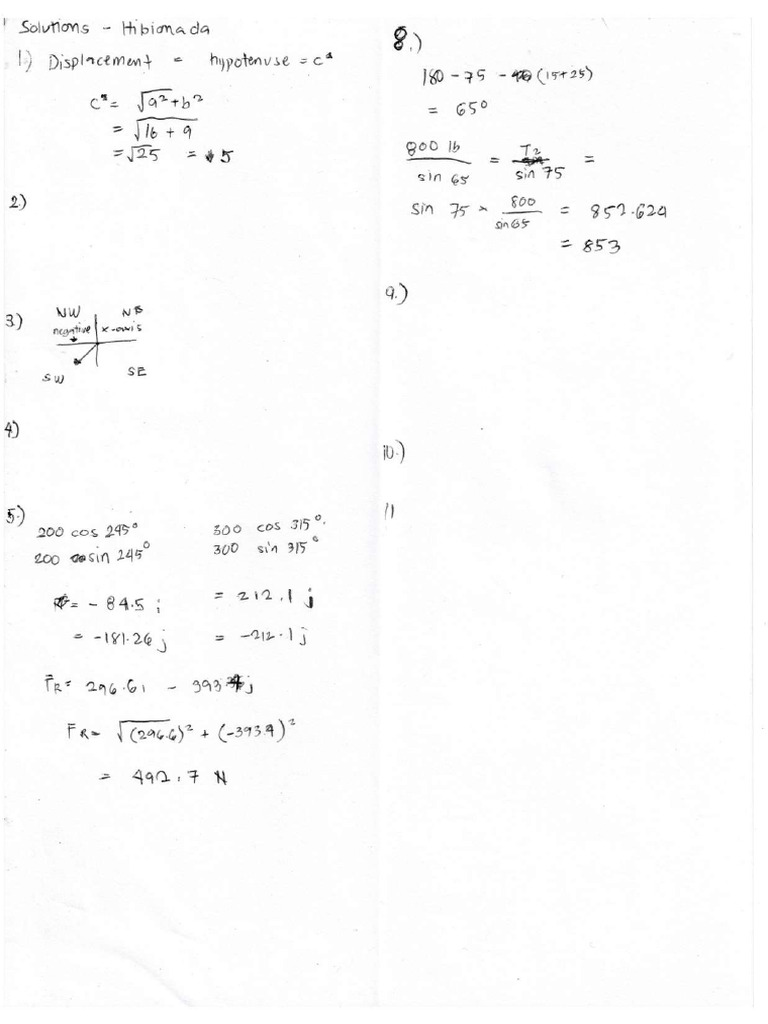 Solutions - Hibionada
1.) Displacement = hypotenuse = c²
c² = √a² + b²
= √16 + 9
= √25 = 5
2.)
3.)
NW NE
negative x-axis
SW SE
4)
5.)
200 cos 245° 300 cos 315°.
200 sin 245° 300 sin 315°
= -84.5 i = 212.1 i
= -181.26 j = -212.1 j
FR = 296.6i - 393.4j
FR = √(296.6)² + (-393.4)²
= 492.7 N
8.)
180 - 75 - (15+25)
= 65°
800 lb / sin 65 = T2 / sin 75 =
sin 75 × 800 / sin 65 = 852.624
= 853
9.)
10.)
11